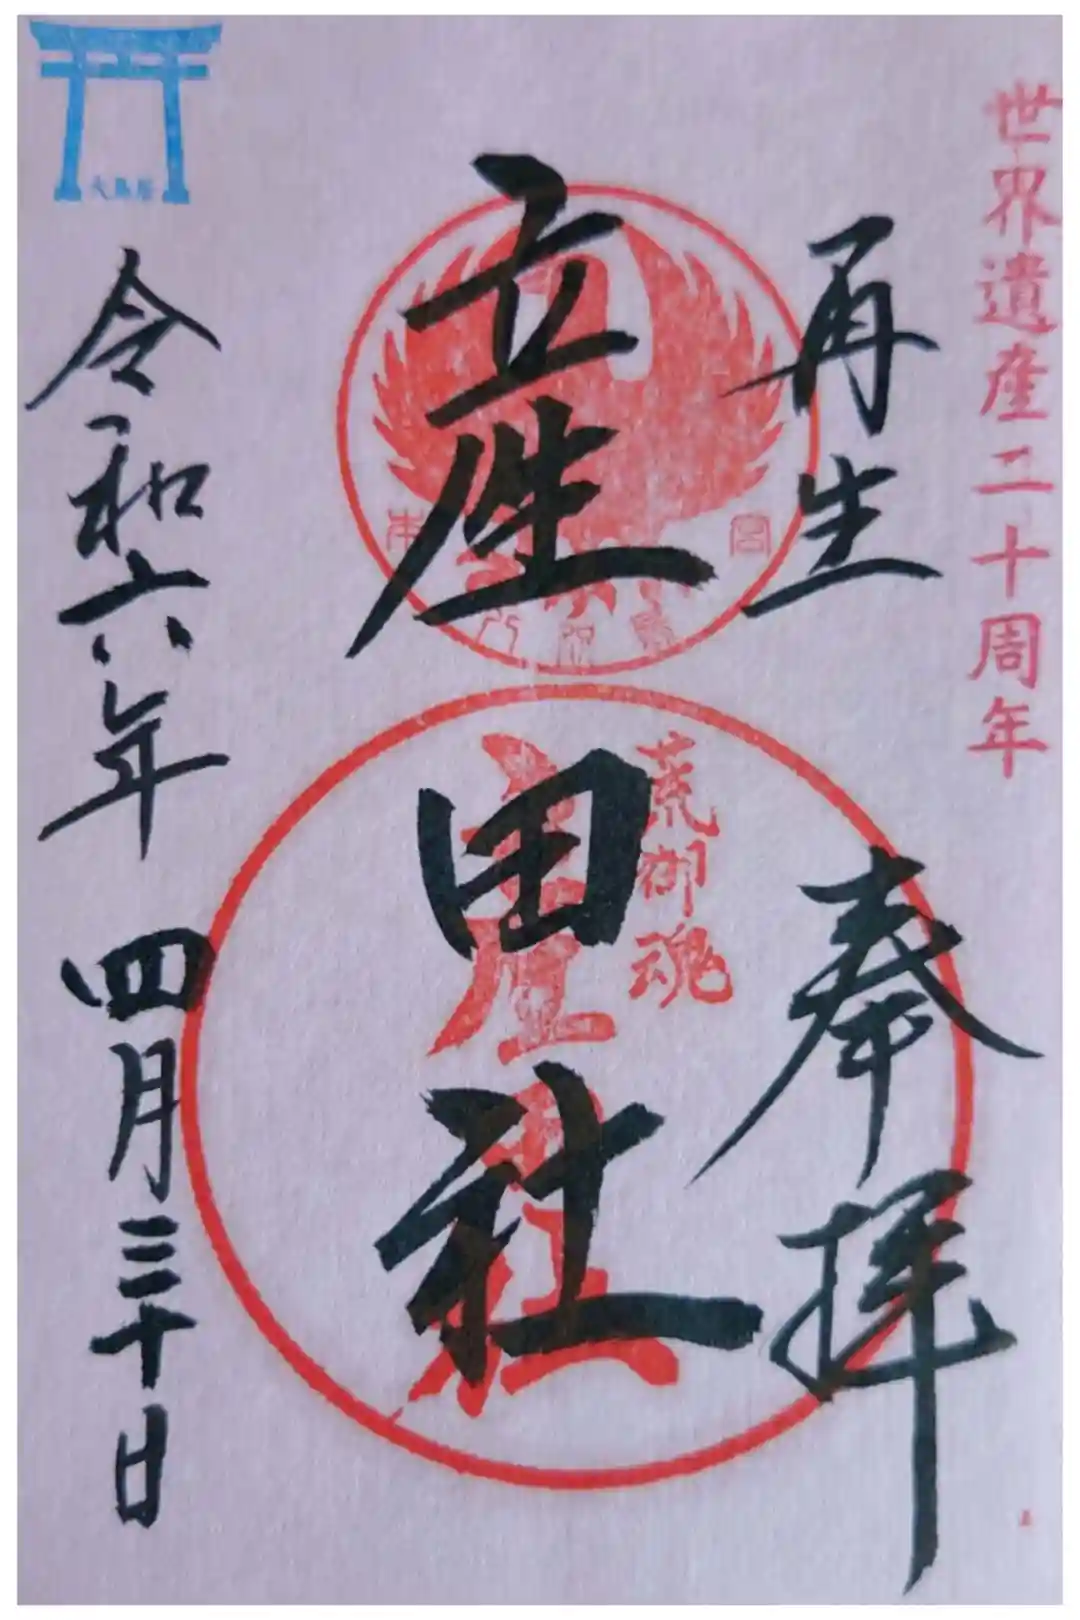 世界遺産二十周年
再生 奉拝
荒御魂
産田社
産田社
令和六年 四月三十日
大鳥居